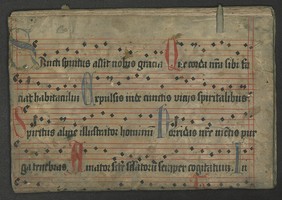 Sancti spiritus assit nobis gracia Que corda nr̄a sibi fa
ciat habitaculū Expulsis inde cunctis vicijs spiritalibus
Spiritus alme illustrator hominum Horridas nr̄e mētis pur
ga tenebras Amator sc̄e sēsatorū semper cogitatuum In